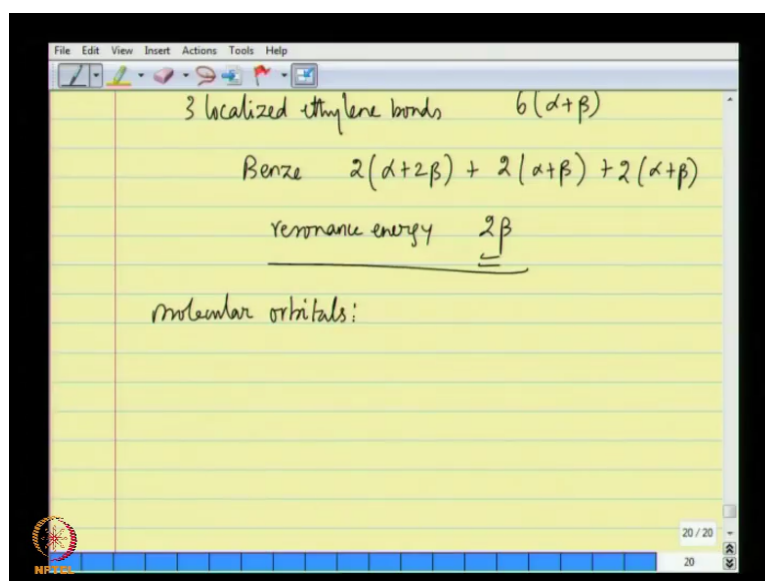 File Edit View Insert Actions Tools Help
3 localized ethylene bonds 6(α+β)
Benze 2(α+2β) + 2(α+β) + 2(α+β)
resonance energy 2β
molecular orbitals:
20 / 20
20
NPTEL